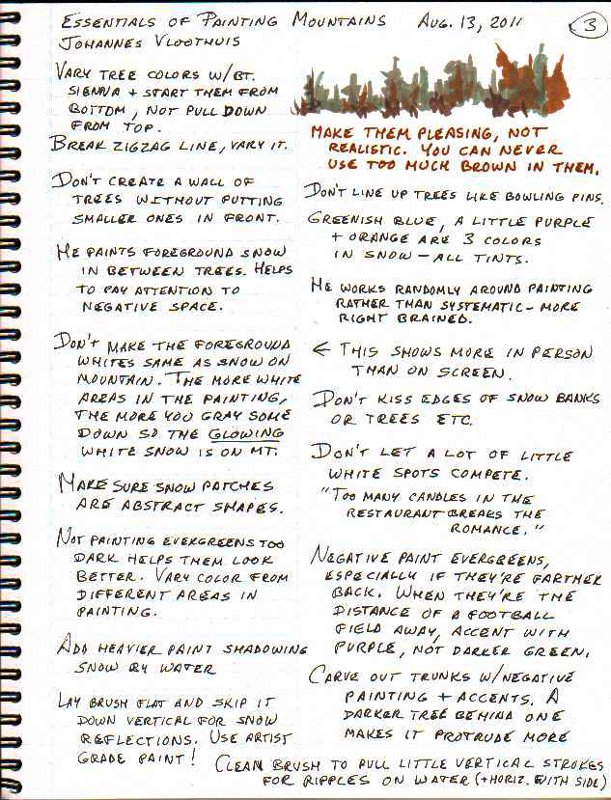 ESSENTIALS OF PAINTING MOUNTAINS AUG. 13, 2011 3
JOHANNES VLOOTHUIS
VARY TREE COLORS W/BT.
SIENNA + START THEM FROM
BOTTOM, NOT PULL DOWN
FROM TOP.
BREAK ZIGZAG LINE, VARY IT.
DON'T CREATE A WALL OF
TREES WITHOUT PUTTING
SMALLER ONES IN FRONT.
HE PAINTS FOREGROUND SNOW
IN BETWEEN TREES. HELPS
TO PAY ATTENTION TO
NEGATIVE SPACE.
DON'T MAKE THE FOREGROUND
WHITES SAME AS SNOW ON
MOUNTAIN. THE MORE WHITE
AREAS IN THE PAINTING,
THE MORE YOU GRAY SOME
DOWN SO THE GLOWING
WHITE SNOW IS ON MT.
MAKE SURE SNOW PATCHES
ARE ABSTRACT SHAPES.
NOT PAINTING EVERGREENS TOO
DARK HELPS THEM LOOK
BETTER. VARY COLOR FROM
DIFFERENT AREAS IN
PAINTING.
ADD HEAVIER PAINT SHADOWING
SNOW BY WATER
LAY BRUSH FLAT AND SKIP IT
DOWN VERTICAL FOR SNOW
REFLECTIONS. USE ARTIST
GRADE PAINT!
MAKE THEM PLEASING, NOT
REALISTIC. YOU CAN NEVER
USE TOO MUCH BROWN IN THEM.
DON'T LINE UP TREES LIKE BOWLING PINS.
GREENISH BLUE, A LITTLE PURPLE
+ ORANGE ARE 3 COLORS
IN SNOW - ALL TINTS.
HE WORKS RANDOMLY AROUND PAINTING
RATHER THAN SYSTEMATIC - MORE
RIGHT BRAINED.
← THIS SHOWS MORE IN PERSON
THAN ON SCREEN.
DON'T KISS EDGES OF SNOW BANKS
OR TREES ETC.
DON'T LET A LOT OF LITTLE
WHITE SPOTS COMPETE.
"TOO MANY CANDLES IN THE
RESTAURANT BREAKS THE
ROMANCE."
NEGATIVE PAINT EVERGREENS,
ESPECIALLY IF THEY'RE FARTHER
BACK. WHEN THEY'RE THE
DISTANCE OF A FOOTBALL
FIELD AWAY, ACCENT WITH
PURPLE, NOT DARKER GREEN.
CARVE OUT TRUNKS W/NEGATIVE
PAINTING + ACCENTS. A
DARKER TREE BEHIND ONE
MAKES IT PROTRUDE MORE
CLEAN BRUSH TO PULL LITTLE VERTICAL STROKES
FOR RIPPLES ON WATER (+HORIZ. WITH SIDE)